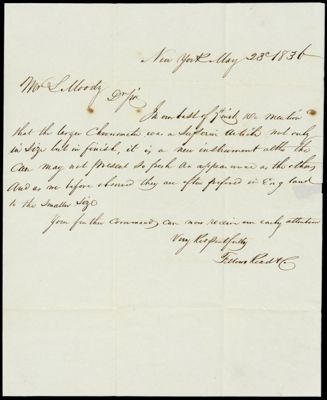 New York May 23d 1836
Mr L Moody
Dr Sir
In our last of Inst, We mention
that the larger Chronometer was a Superior Article not only
in size but in finish, it is a new instrument altho the
Case may not present so fresh an appearance as the others
And as we before observed they are often prefered in England
to the Smaller Size
Your further Commands can now receive our early attention
Very Respectfully
Fellows Read & Co.